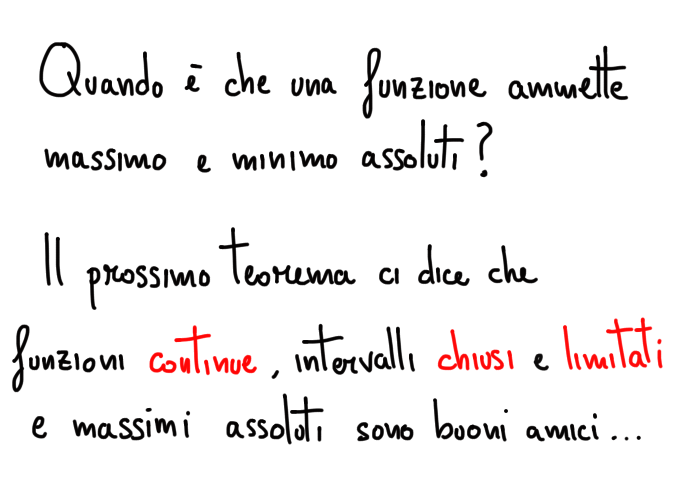 Quando è che una funzione ammette
massimo e minimo assoluti?
Il prossimo teorema ci dice che
funzioni continue, intervalli chiusi e limitati
e massimi assoluti sono buoni amici...